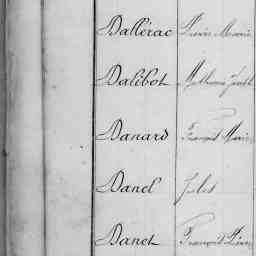 Dallérac Pierre Marie
Dalibot Mathurin Joseph
Danard François Marie
Danel Jules
Danet François Pierre